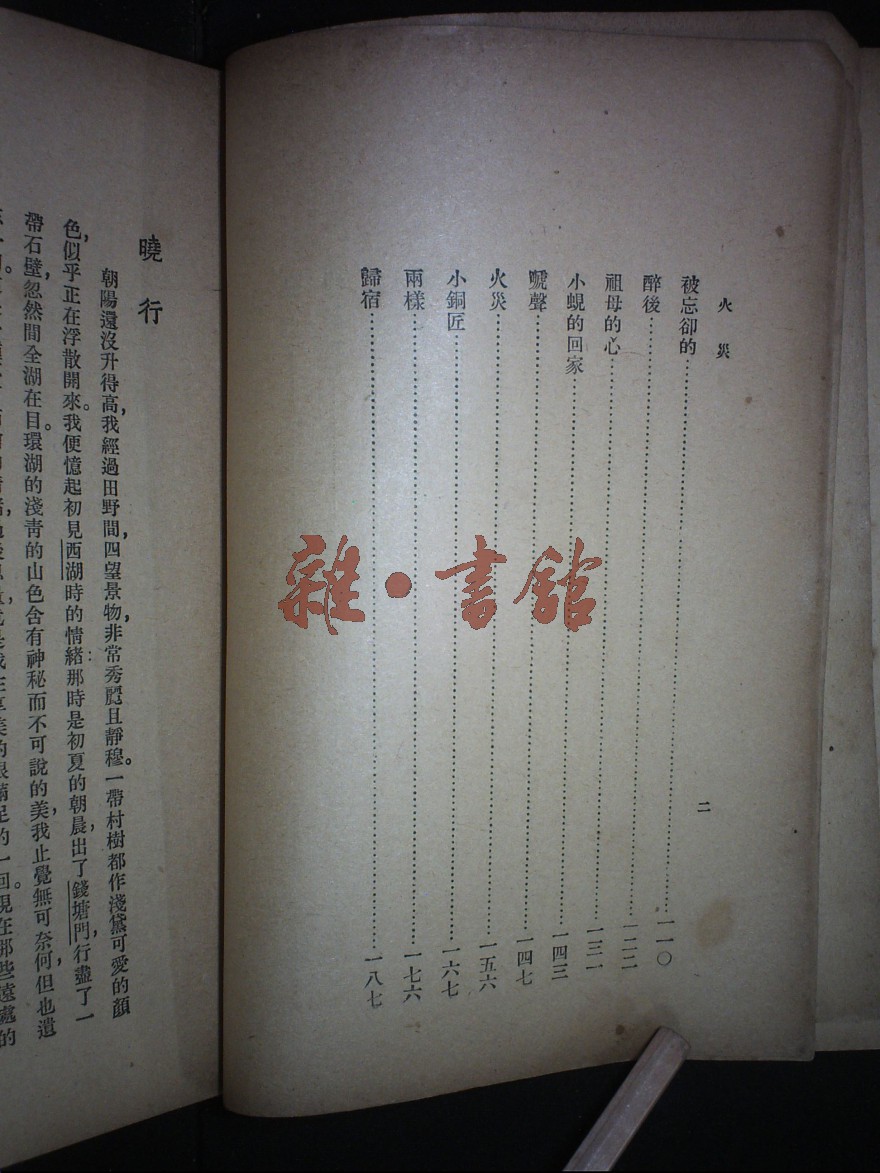 火災
被忘卻的……一一〇
醉後……一二二
祖母的心……一三一
小蜆的回家……一四三
嗁聲……一四七
火災……一五六
小銅匠……一六七
兩樣……一七六
歸宿……一八七
二
雜·書館
曉行
朝陽還沒升得高,我經過田野間,四望景物,非常秀麗且靜穆。一帶村樹都作淺黛可愛的顏
色,似乎正在浮散開來。我便憶起初見西湖時的情緒:那時是初夏的朝晨,出了錢塘門,行盡了一
帶石壁,忽然間全湖在目。環湖的淺青的山色含有神秘而不可說的美,我止覺無可奈何,但也遺
的很滿足的一回。現在那些遠處的